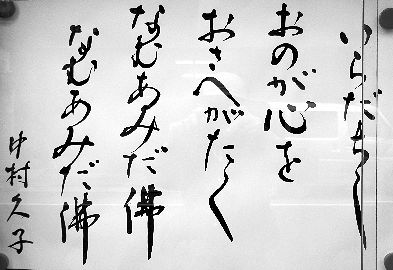 いらだちし
おのが心を
おさへがたく
なむあみだ佛
なむあみだ佛
中村久子